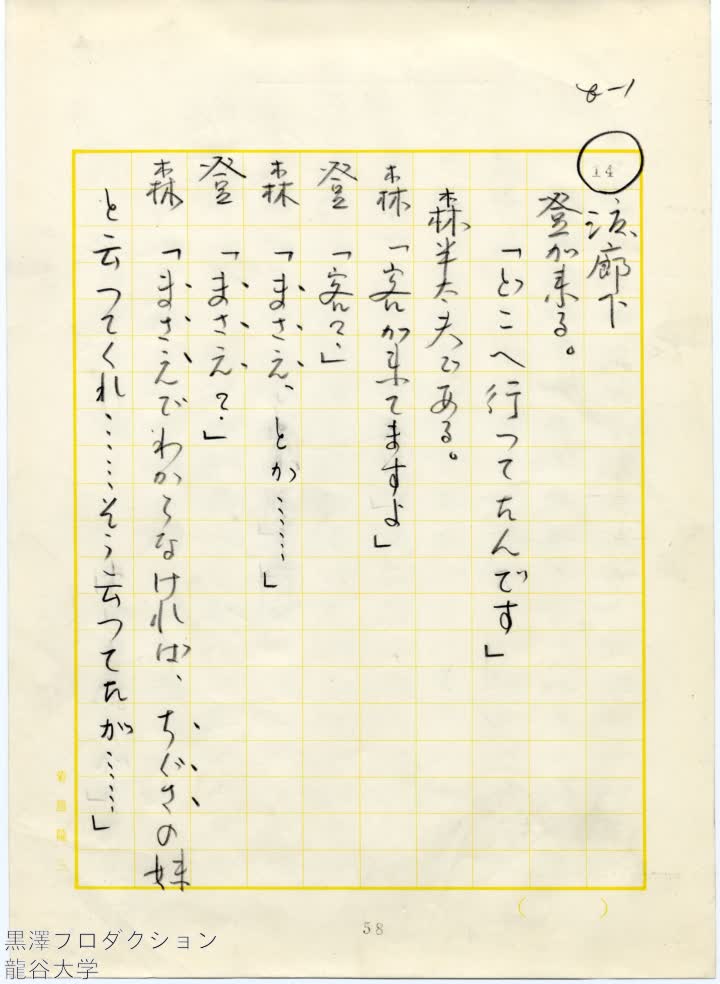 8-1
14
渡廊下
登が来る。
「どこへ行つてたんです」
森半太夫である。
森「客が来てますよ」
登「客?」
森「まさえ、とか……」
登「まさえ?」
森「まさえでわからなければ、ちぐさの妹
と云つてくれ……そう云つてたが……」
58
黒澤プロダクション
龍谷大学